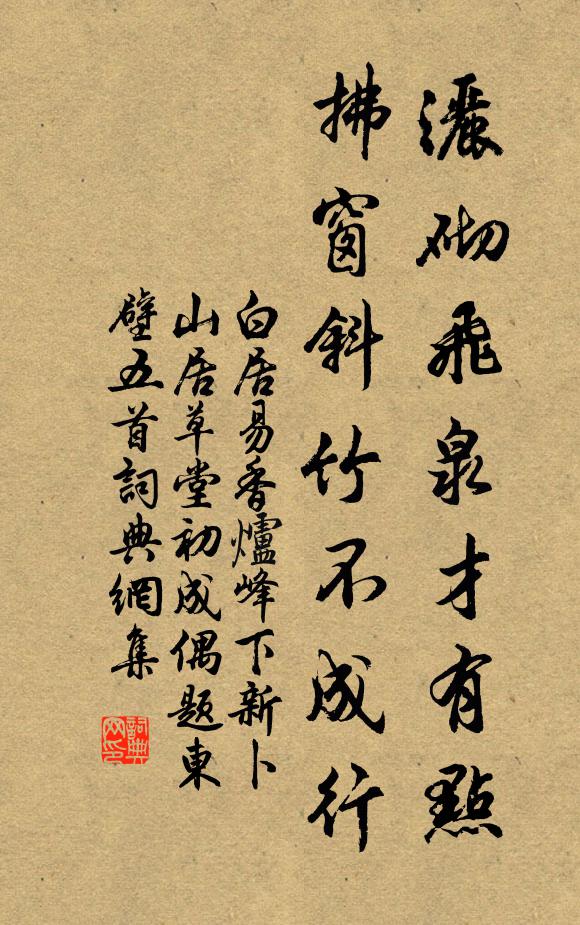 灑砌飛泉才有點
拂窗斜竹不成行
白居易香爐峰下新卜
山居草堂初成偶題東
壁五首詞典網集
詞典
网印